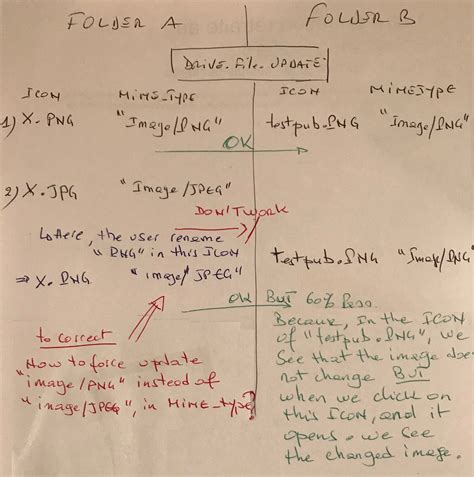 FOLDER A FOLDER B
DRIVE.File.UPDATE
ICON MiME_TYPE ICON MiMETYPE
1) X.PNG "Image/PNG" testpub.PNG "Image/PNG"
OK
2) X.JPG "Image/JPEG"
DON'T WORK
Where, the user rename
"PNG" in this ICON
testpub.PNG "Image/PNG"
⇒ X.PNG "image/JPEG"
OK BUT 60% less
to correct
How to force update
"image/PNG" instead of
"image/JPEG", in MiME_type?
Because, In the ICON
of "testpub.PNG", we
See that the image does
not change BUT
when we click on
this ICON, and it
opens, we see
the changed image.